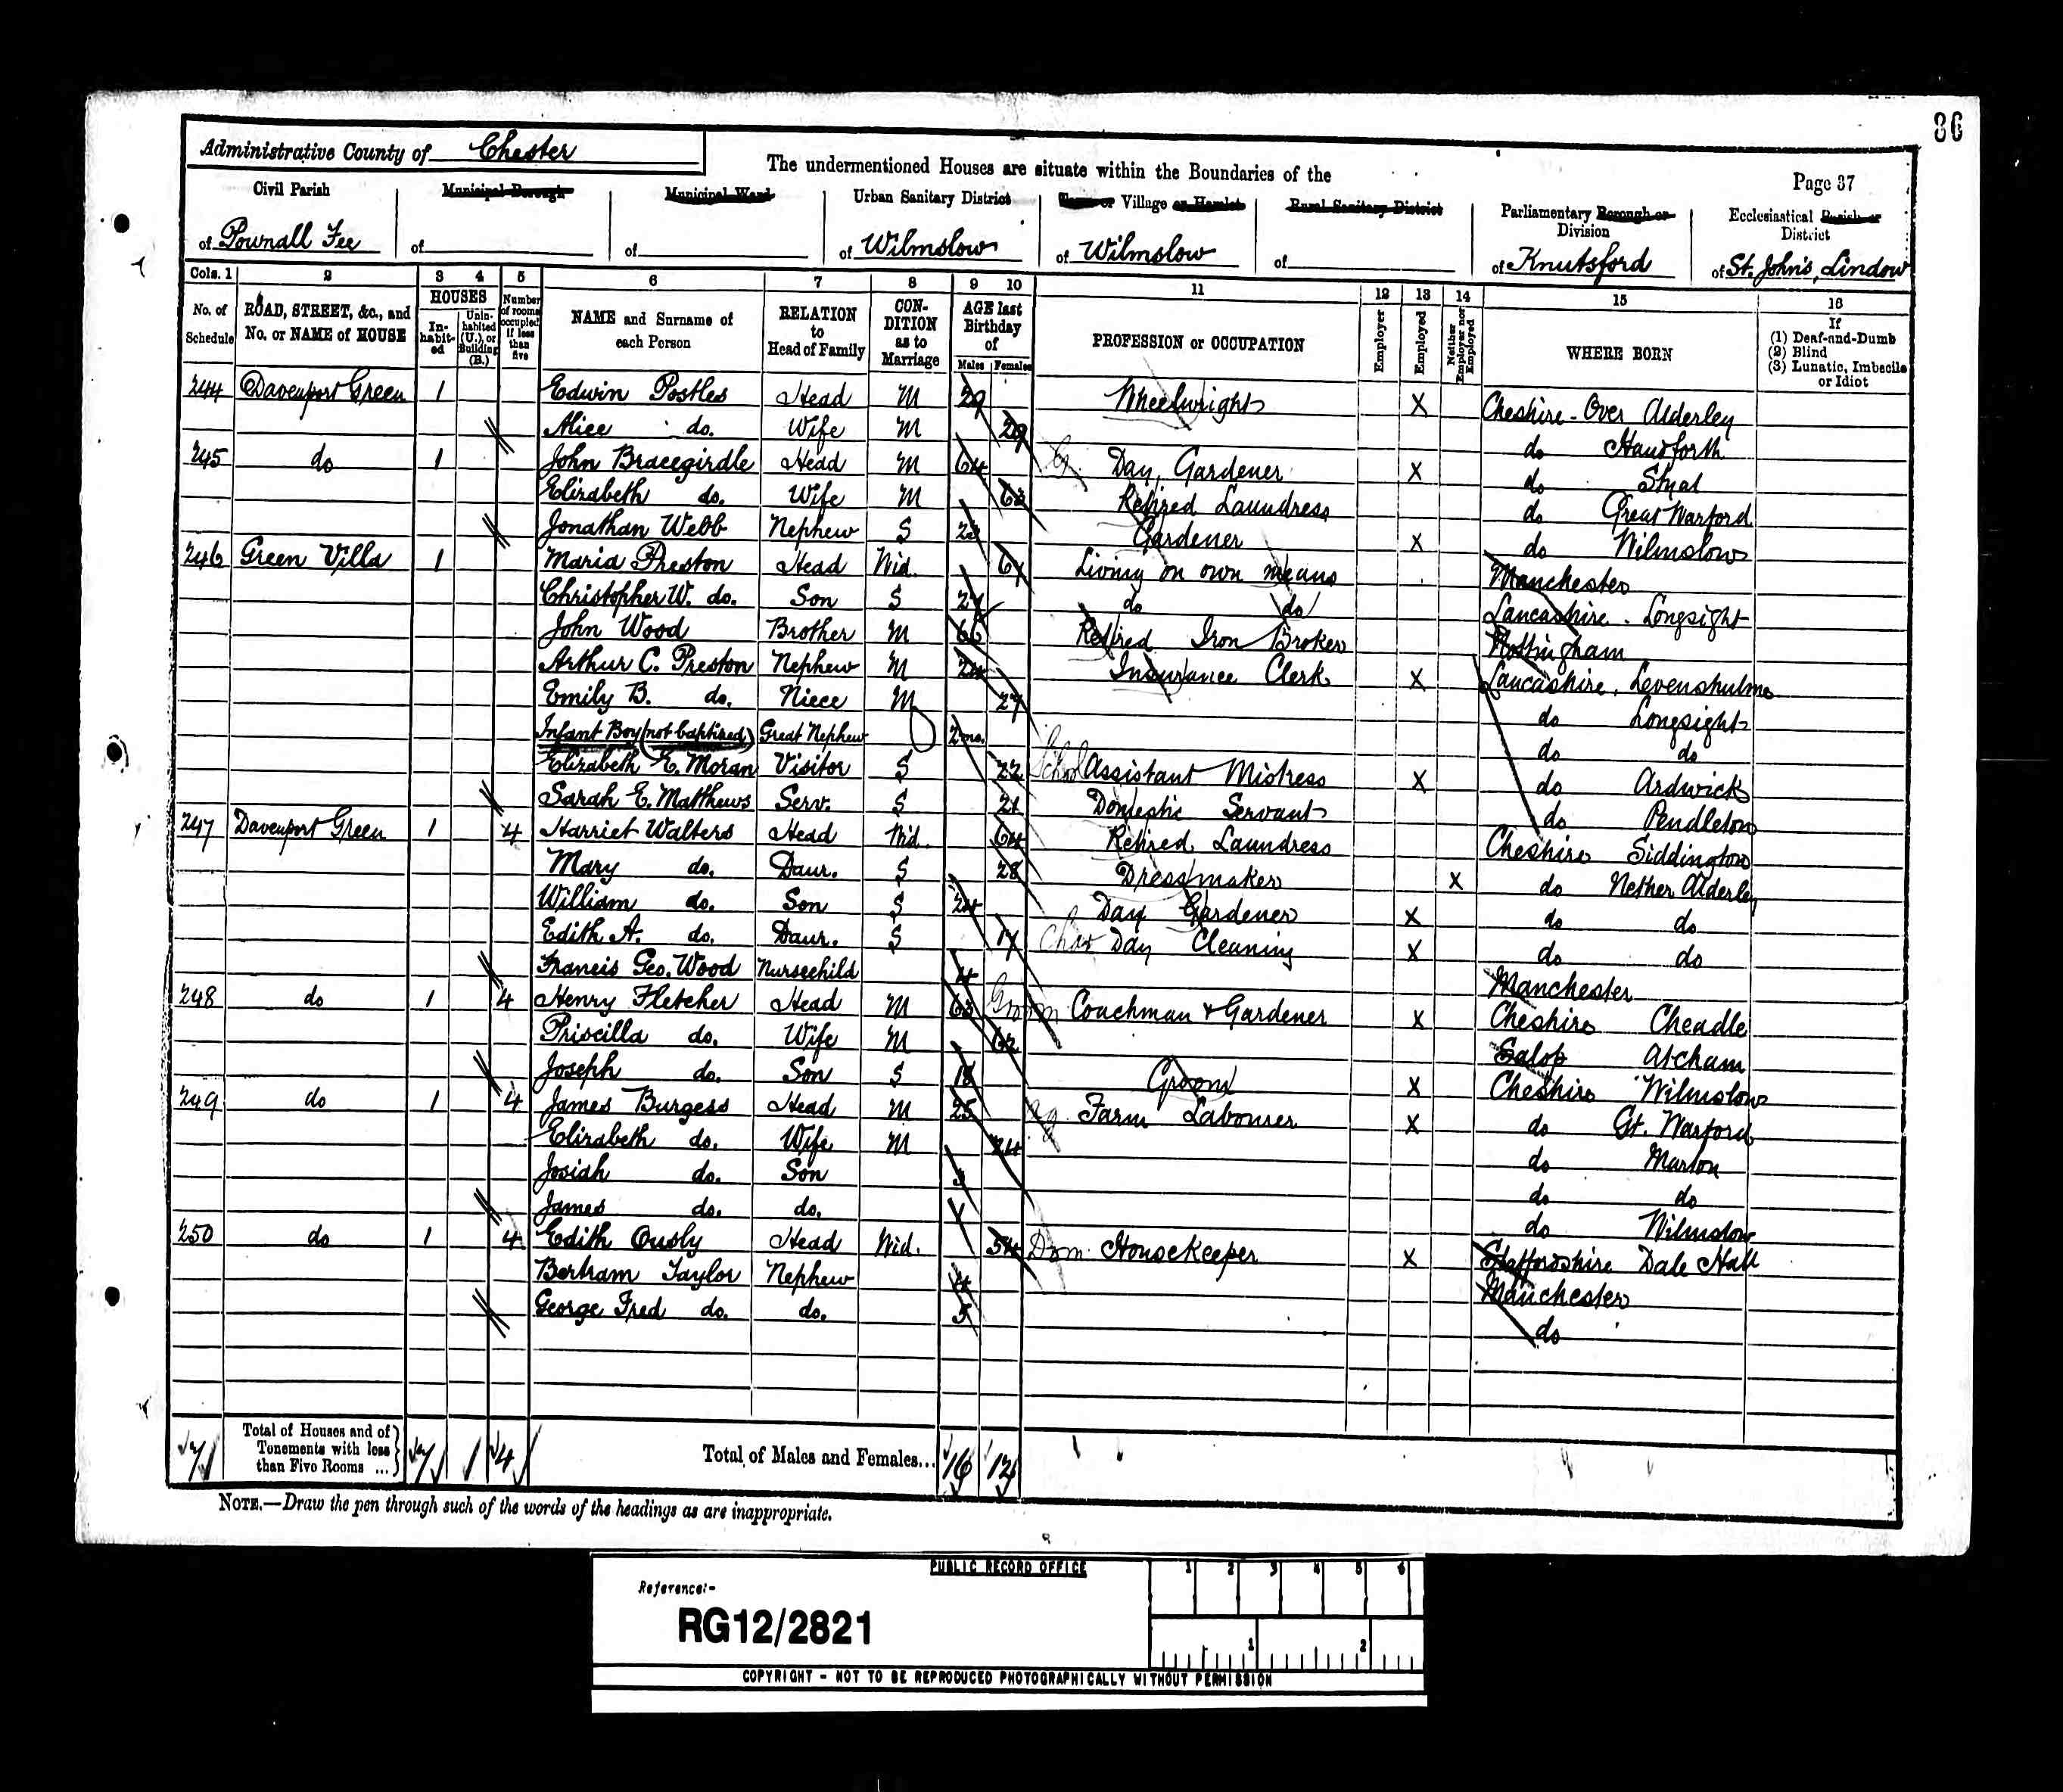 86
Administrative County of Chester
The undermentioned Houses are situate within the Boundaries of the
Page 37
Civil Parish of Pownall Fee
Municipal Borough of
Municipal Ward of
Urban Sanitary District of Wilmslow
Town or Village or Hamlet of Wilmslow
Rural Sanitary District of
Parliamentary Borough or Division of Knutsford
Ecclesiastical Parish or District of St. John's, Lindow
Cols. 1 2 3 4 5 6 7 8 9 10 11 12 13 14 15 16
No. of Schedule
ROAD, STREET, &c., and No. or NAME of HOUSE
HOUSES
Inhabited
Uninhabited (U.), or Building (B.)
Number of rooms occupied if less than five
NAME and Surname of each Person
RELATION to Head of Family
CONDITION as to Marriage
AGE last Birthday of
Males Females
PROFESSION or OCCUPATION
Employer
Employed
Neither Employer nor Employed
WHERE BORN
If
(1) Deaf-and-Dumb
(2) Blind
(3) Lunatic, Imbecile or Idiot
244 Davenport Green 1 Edwin Postles Head M 29 Wheelwright X Cheshire - Over Alderley
Alice do. Wife M 29 do Handforth
245 do 1 John Bracegirdle Head M 64 Day, Gardener X do Styal
Elizabeth do. Wife M 63 Retired Laundress do Great Warford
Jonathan Webb Nephew S 23 Gardener X do Wilmslow
246 Green Villa 1 Maria Preston Head Wid. 61 Living on own means Manchester
Christopher W. do. Son S 27 do do Lancashire. Longsight
John Wood Brother M 66 Retired Iron Broker Nottingham
Arthur C. Preston Nephew M 24 Insurance Clerk X Lancashire, Levenshulme
Emily B. do. Niece M 27 do Longsight
Infant Boy (not baptized) Great Nephew 2 mo. do do
Elizabeth E. Moran Visitor S 22 School Assistant Mistress X do Ardwick
Sarah E. Matthews Serv. S 21 Domestic Servant do Pendleton
247 Davenport Green 1 4 Harriet Walters Head Wid. 64 Retired Laundress Cheshire Siddington
Mary do. Daur. S 28 Dressmaker X do Nether Alderley
William do. Son S 24 Day Gardener X do do
Edith A. do. Daur. S 17 Char Day Cleaning X do do
Francis Geo. Wood Nursechild 4 Manchester
248 do 1 4 Henry Fletcher Head M 63 Groom Coachman & Gardener X Cheshire Cheadle
Priscilla do. Wife M 62 Salop Atcham
Joseph do. Son S 18 Groom X Cheshire Wilmslow
249 do 1 4 James Burgess Head M 25 Ag Farm Labourer X do Gt. Warford
Elizabeth do. Wife M 24 do Marton
Josiah do. Son 3 do do
James do. do. 1 do Wilmslow
250 do 1 4 Edith Ously Head Wid. 54 Dom. Housekeeper X Staffordshire Dale Hall
Bertram Taylor Nephew 4 Manchester
George Fred do. do. 5 do
7 Total of Houses and of Tenements with less than Five Rooms ... 7 4 Total of Males and Females... 16 12
NOTE.—Draw the pen through such of the words of the headings as are inappropriate.
PUBLIC RECORD OFFICE
1 2 3 4 5 6
Reference:-
RG12/2821
1 2
COPYRIGHT - NOT TO BE REPRODUCED PHOTOGRAPHICALLY WITHOUT PERMISSION